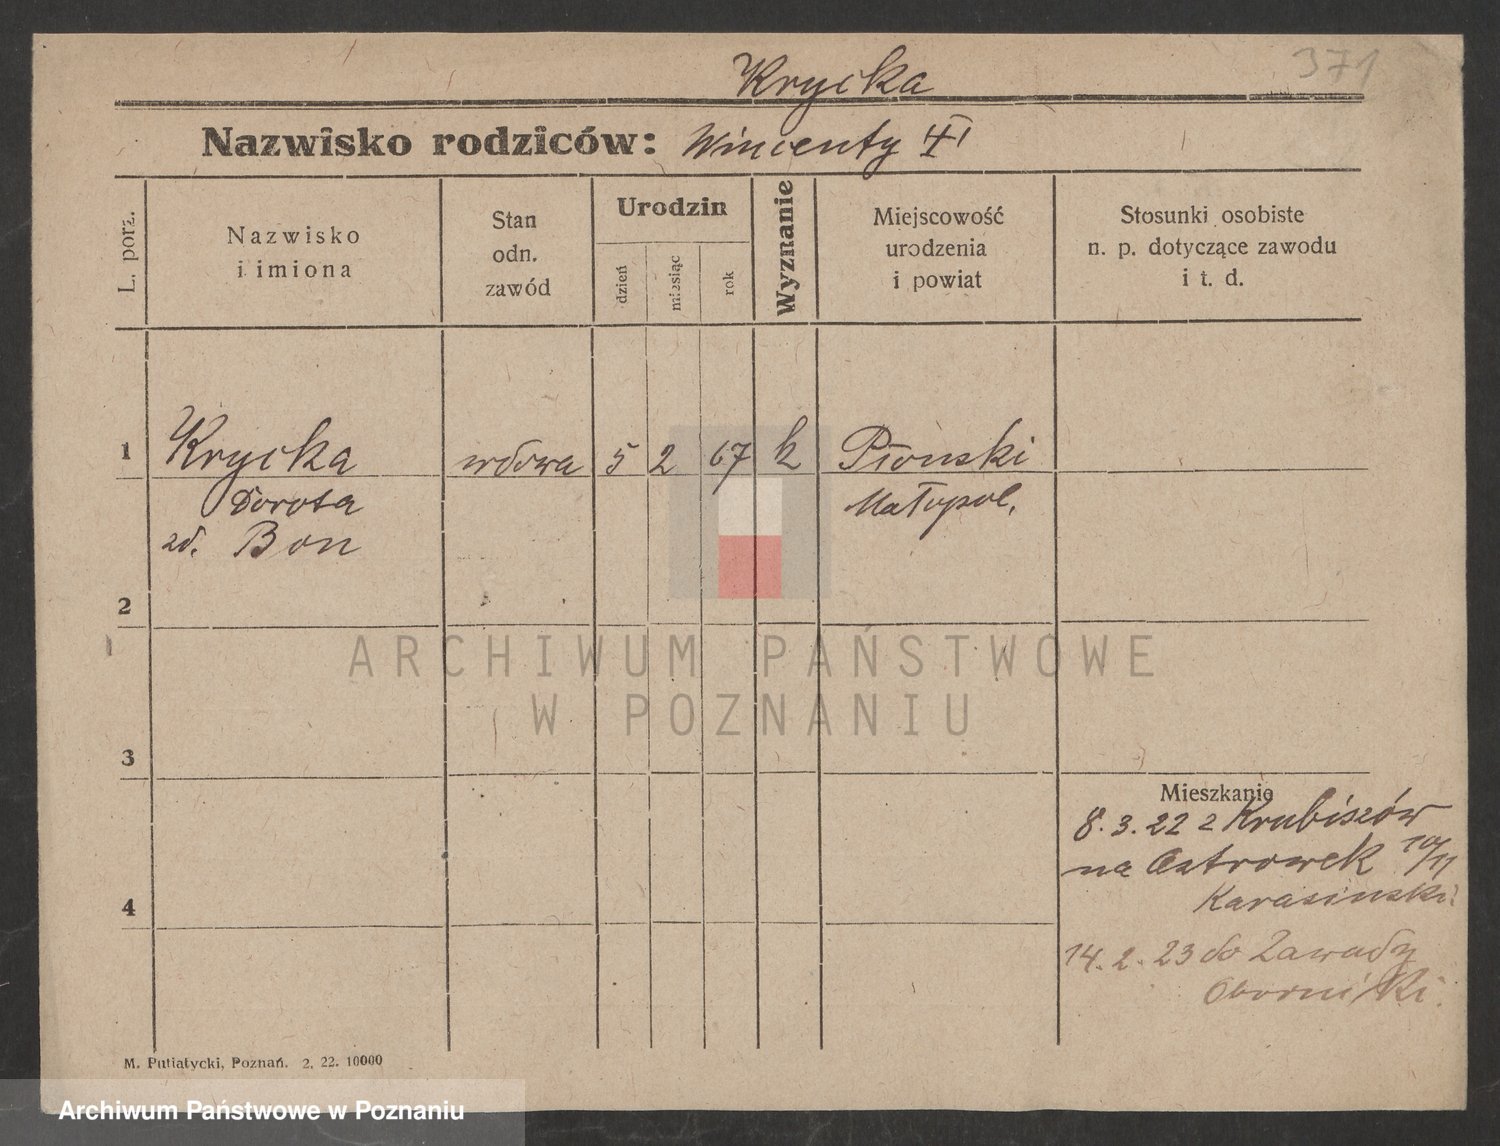 371
Krycka
Nazwisko rodziców: Wincenty
L. porz.
Nazwisko
i imiona
Stan
odn.
zawód
Urodzin
dzień
miesiąc
rok
Wyznanie
Miejscowość
urodzenia
i powiat
Stosunki osobiste
n. p. dotyczące zawodu
i t. d.
1 Krycka wdowa 5 2 67 k Płonski
Dorota Małopol.
zd. Bon
2
ARCHIWUM PAŃSTWOWE
W POZNANIU
3
Mieszkanie
8.3.22 z Krubiszów
na Ostrowek 10/11
Karasinski
4
14.2.23 do Zawady
Oborniki.
M. Putiatycki, Poznań. 2, 22. 10000
Archiwum Państwowe w Poznaniu